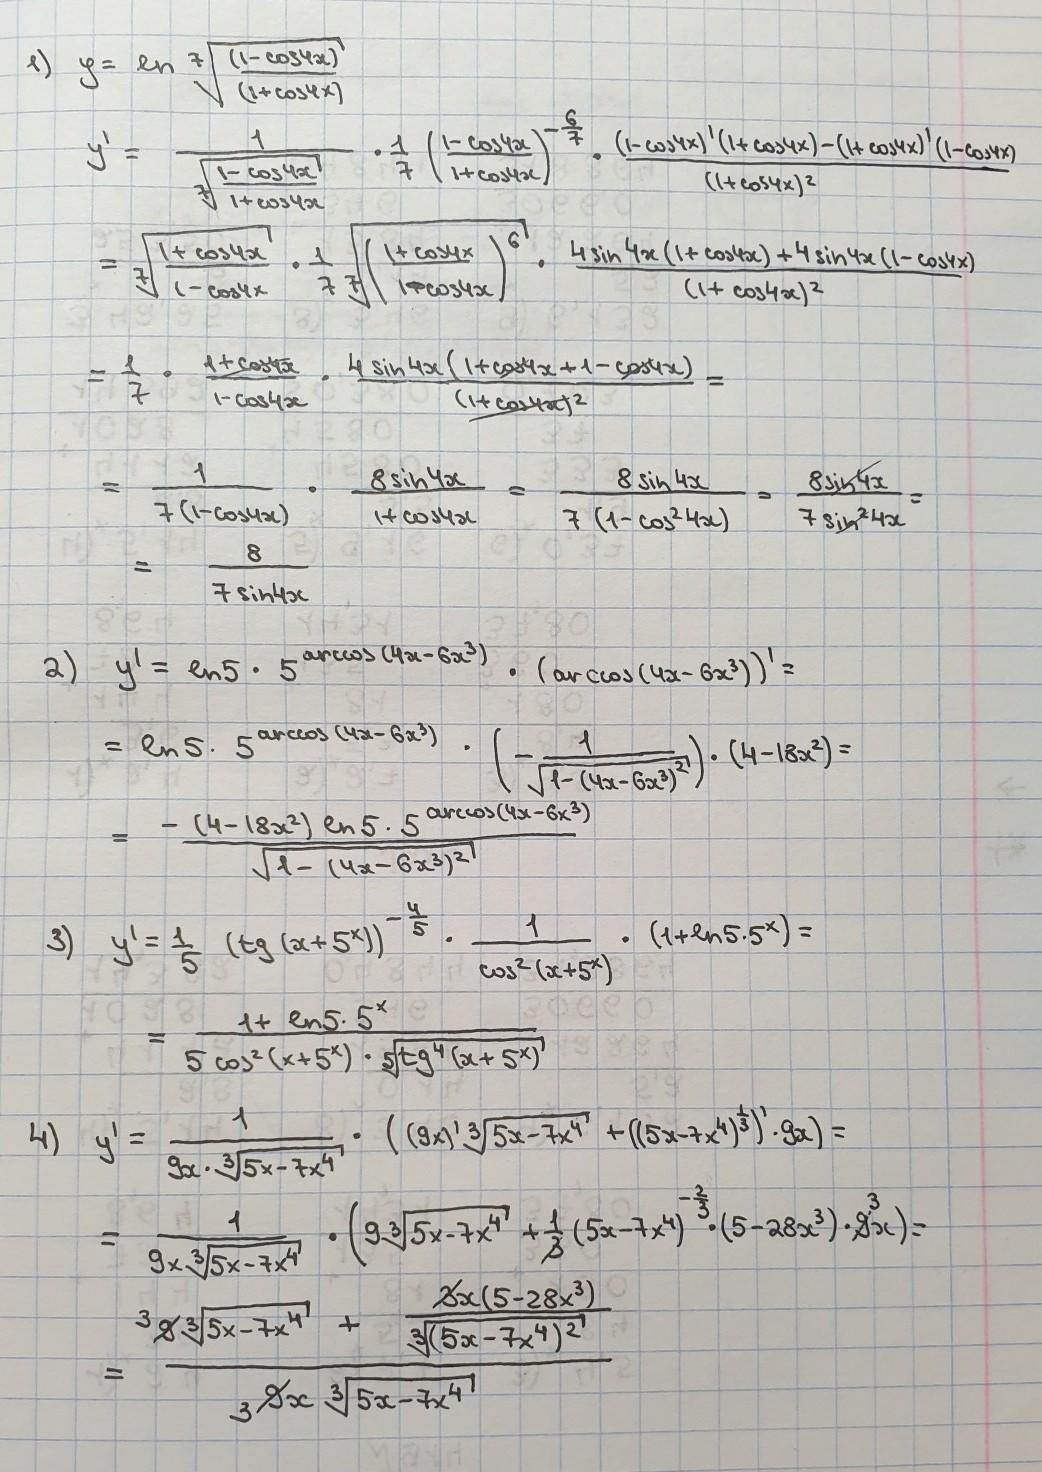 1) y = ln ⁷√((1-cos4x)/(1+cos4x))
y' = 1/(⁷√((1-cos4x)/(1+cos4x))) · 1/7 ((1-cos4x)/(1+cos4x))^(-6/7) · ((1-cos4x)'(1+cos4x)-(1+cos4x)'(1-cos4x))/((1+cos4x)²)
= ⁷√((1+cos4x)/(1-cos4x)) · 1/7 ⁷√(((1+cos4x)/(1-cos4x))⁶) · (4sin4x(1+cos4x)+4sin4x(1-cos4x))/((1+cos4x)²)
= 1/7 · (1+cos4x)/(1-cos4x) · (4sin4x(1+cos4x+1-cos4x))/((1+cos4x)²) =
= 1/(7(1-cos4x)) · (8sin4x)/(1+cos4x) = (8sin4x)/(7(1-cos²4x)) = (8sin4x)/(7sin²4x) =
= 8/(7sin4x)
2) y' = ln5 · 5^(arccos(4x-6x³)) · (arccos(4x-6x³))' =
= ln5 · 5^(arccos(4x-6x³)) · (-1/√(1-(4x-6x³)²)) · (4-18x²) =
= (-(4-18x²) ln5 · 5^(arccos(4x-6x³)))/(√(1-(4x-6x³)²))
3) y' = 1/5 (tg(x+5ˣ))^(-4/5) · 1/(cos²(x+5ˣ)) · (1+ln5·5ˣ) =
= (1+ ln5·5ˣ)/(5cos²(x+5ˣ) · ⁵√(tg⁴(x+5ˣ)))
4) y' = 1/(9x·³√(5x-7x⁴)) · ((9x)' ³√(5x-7x⁴) + ((5x-7x⁴)^(1/3))' · 9x) =
= 1/(9x ³√(5x-7x⁴)) · (9 ³√(5x-7x⁴) + 1/3 (5x-7x⁴)^(-2/3) · (5-28x³) · 9 3x) =
= (3 9 ³√(5x-7x⁴) + (3x(5-28x³))/(³√((5x-7x⁴)²)))/(3 9x ³√(5x-7x⁴))